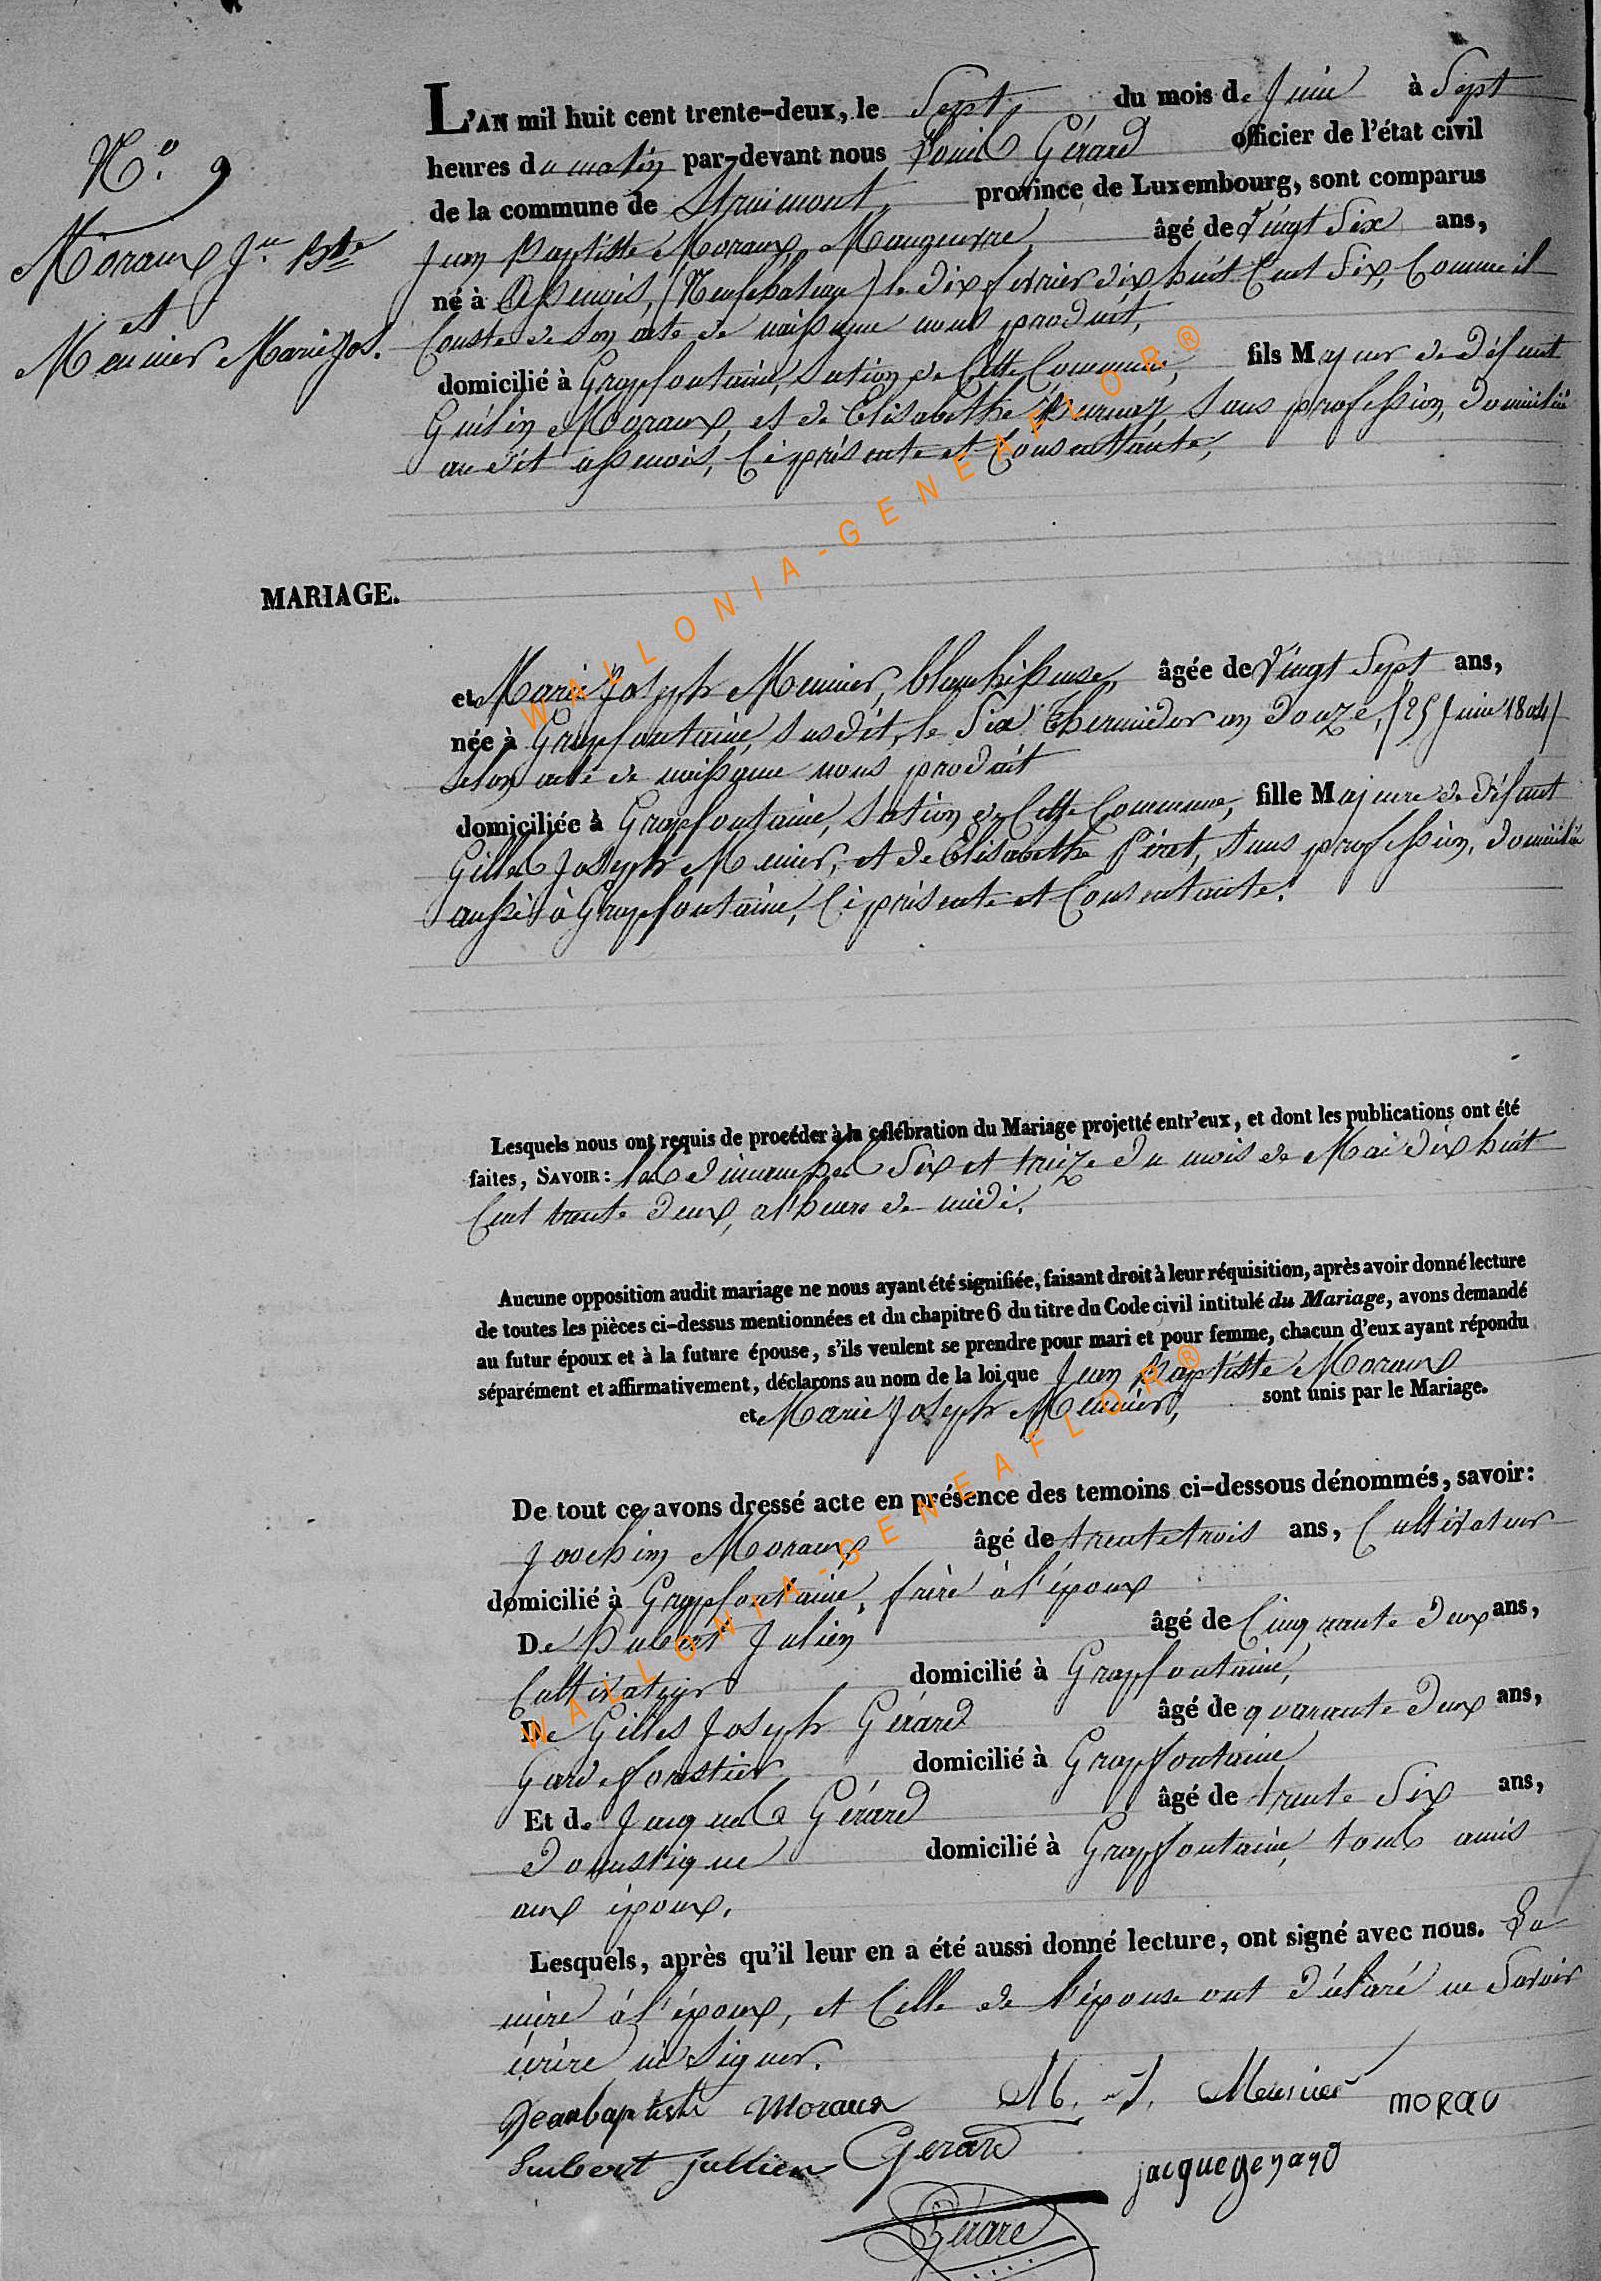 N.o 9
Moraux Jn. Bte
et
Meunier Marie Jos.
MARIAGE.
L'AN mil huit cent trente-deux, le Sept, du mois de Juin à Sept
heures du matin par-devant nous Louis Gérard officier de l'état civil
de la commune de Straimont, province de Luxembourg, sont comparus
Jean Baptiste Moraux, âgé de Vingt Six ans,
né à Assenois, (Neufchateau) le dix fevrier dix huit Cent Six, Comme il
Conste de son acte de naissance nous produit,
domicilié à Grapfontaine, section de Cette Commune, fils Majeur de Défunt
Guélin Moraux, et de Elisabethe sans profession, domiciliée
au dit assenois, Ci présente et Consentante,
et Marie Joseph Meunier, blanchisseuse, âgée de Vingt Sept ans,
née à Grapfontaine, susdit, le Six Thermidor an Douze, (25 Juin 1804)
selon acte de naissance nous produit
domiciliée à Grapfontaine, section de Cette Commune, fille Majeure de Défunt
Gilles Joseph Meunier, et de Elisabethe Piret, sans profession, domiciliée
aussi à Grapfontaine, Ci présente et Consentante.
Lesquels nous ont requis de procéder à la célébration du Mariage projetté entr'eux, et dont les publications ont été
faites, SAVOIR: les dimanches Six et treize du mois de Mai dix huit
Cent trente deux, a l'heure de midi.
Aucune opposition audit mariage ne nous ayant été signifiée, faisant droit à leur réquisition, après avoir donné lecture
de toutes les pièces ci-dessus mentionnées et du chapitre 6 du titre du Code civil intitulé du Mariage, avons demandé
au futur époux et à la future épouse, s'ils veulent se prendre pour mari et pour femme, chacun d'eux ayant répondu
séparément et affirmativement, déclarons au nom de la loi que Jean Baptiste Moraux
et Marie Joseph Meunier, sont unis par le Mariage.
De tout ce avons dressé acte en présence des temoins ci-dessous dénommés, savoir:
Joachim Moraux âgé de trente trois ans, Cultivateur
domicilié à Grapfontaine, frère à l'époux
De Hubert Julien âgé de Cinquante deux ans,
Cultivateur domicilié à Grapfontaine,
De Gilles Joseph Gérard âgé de quarante deux ans,
Garde forestier domicilié à Grapfontaine
Et de Jacques Gérard âgé de trente Six ans,
Domestique domicilié à Grapfontaine, tous amis
aux époux.
Lesquels, après qu'il leur en a été aussi donné lecture, ont signé avec nous. La
mère à l'époux, et Celle de l'épouse ont déclaré ne Savoir
écrire ni signer.
Jeanbaptiste Moraux M. J. Meunier morau
hubert jullien Gerard jacquegerard
Gérard
WALLONIA-GENEAFLOR®
WALLONIA-GENEAFLOR®